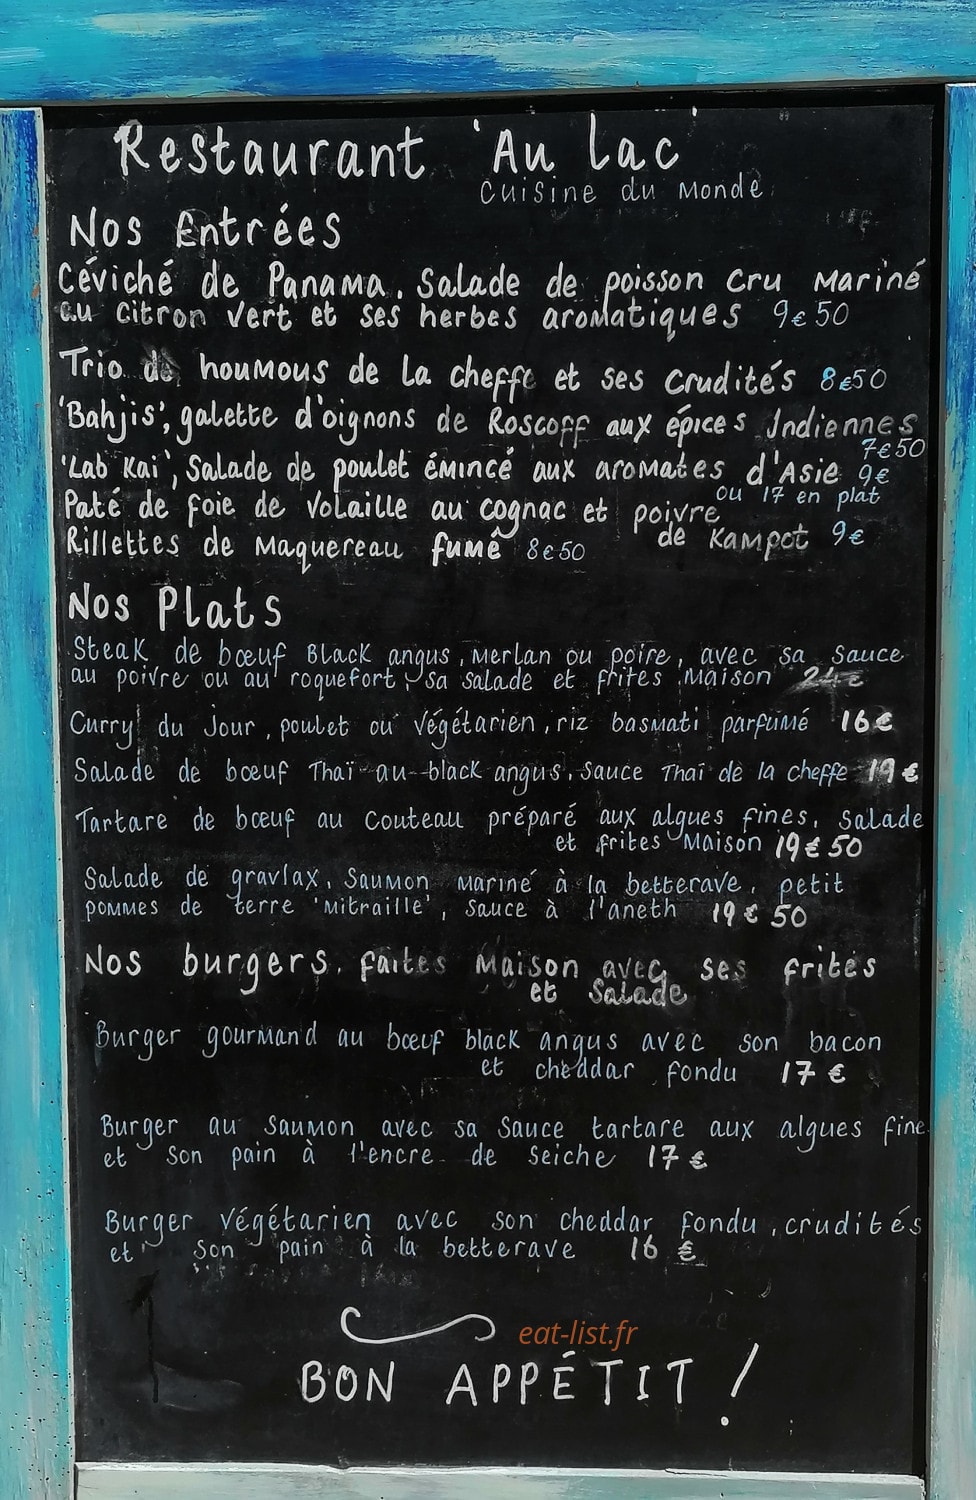 Restaurant 'Au lac'
Cuisine du Monde
Nos Entrées
Céviché de Panama. Salade de poisson Cru Mariné
au Citron Vert et ses herbes aromatiques 9€50
Trio de houmous de la cheffe et ses Crudités 8€50
'Bahjis', galette d'oignons de Roscoff aux épices Indiennes
7€50
'Lab Kai', Salade de poulet émincé aux aromates d'Asie 9€
ou 17 en plat
Paté de foie de Volaille au cognac et poivre
de Kampot 9€
Rillettes de Maquereau fumé 8€50
Nos Plats
Steak de bœuf Black angus, Merlan ou poire, avec sa sauce
au poivre ou au roquefort, sa salade et frites Maison 24€
Curry du Jour, poulet ou végétarien, riz basmati parfumé 16€
Salade de bœuf Thaï au black angus. Sauce Thaï de la cheffe 19€
Tartare de bœuf au Couteau préparé aux algues fines, salade
et frites Maison 19€50
Salade de gravlax, Saumon Mariné à la betterave, petit
pommes de terre 'Mitraille', Sauce à l'aneth 19€50
Nos burgers, faites Maison avec ses frites
et Salade
Burger gourmand au bœuf black angus avec son bacon
et cheddar fondu 17€
Burger au Saumon avec sa Sauce tartare aux algues fine
et son pain à l'encre de seiche 17€
Burger Végétarien avec son cheddar fondu, crudités
et son pain à la betterave 16€
eat-list.fr
BON APPÉTIT !